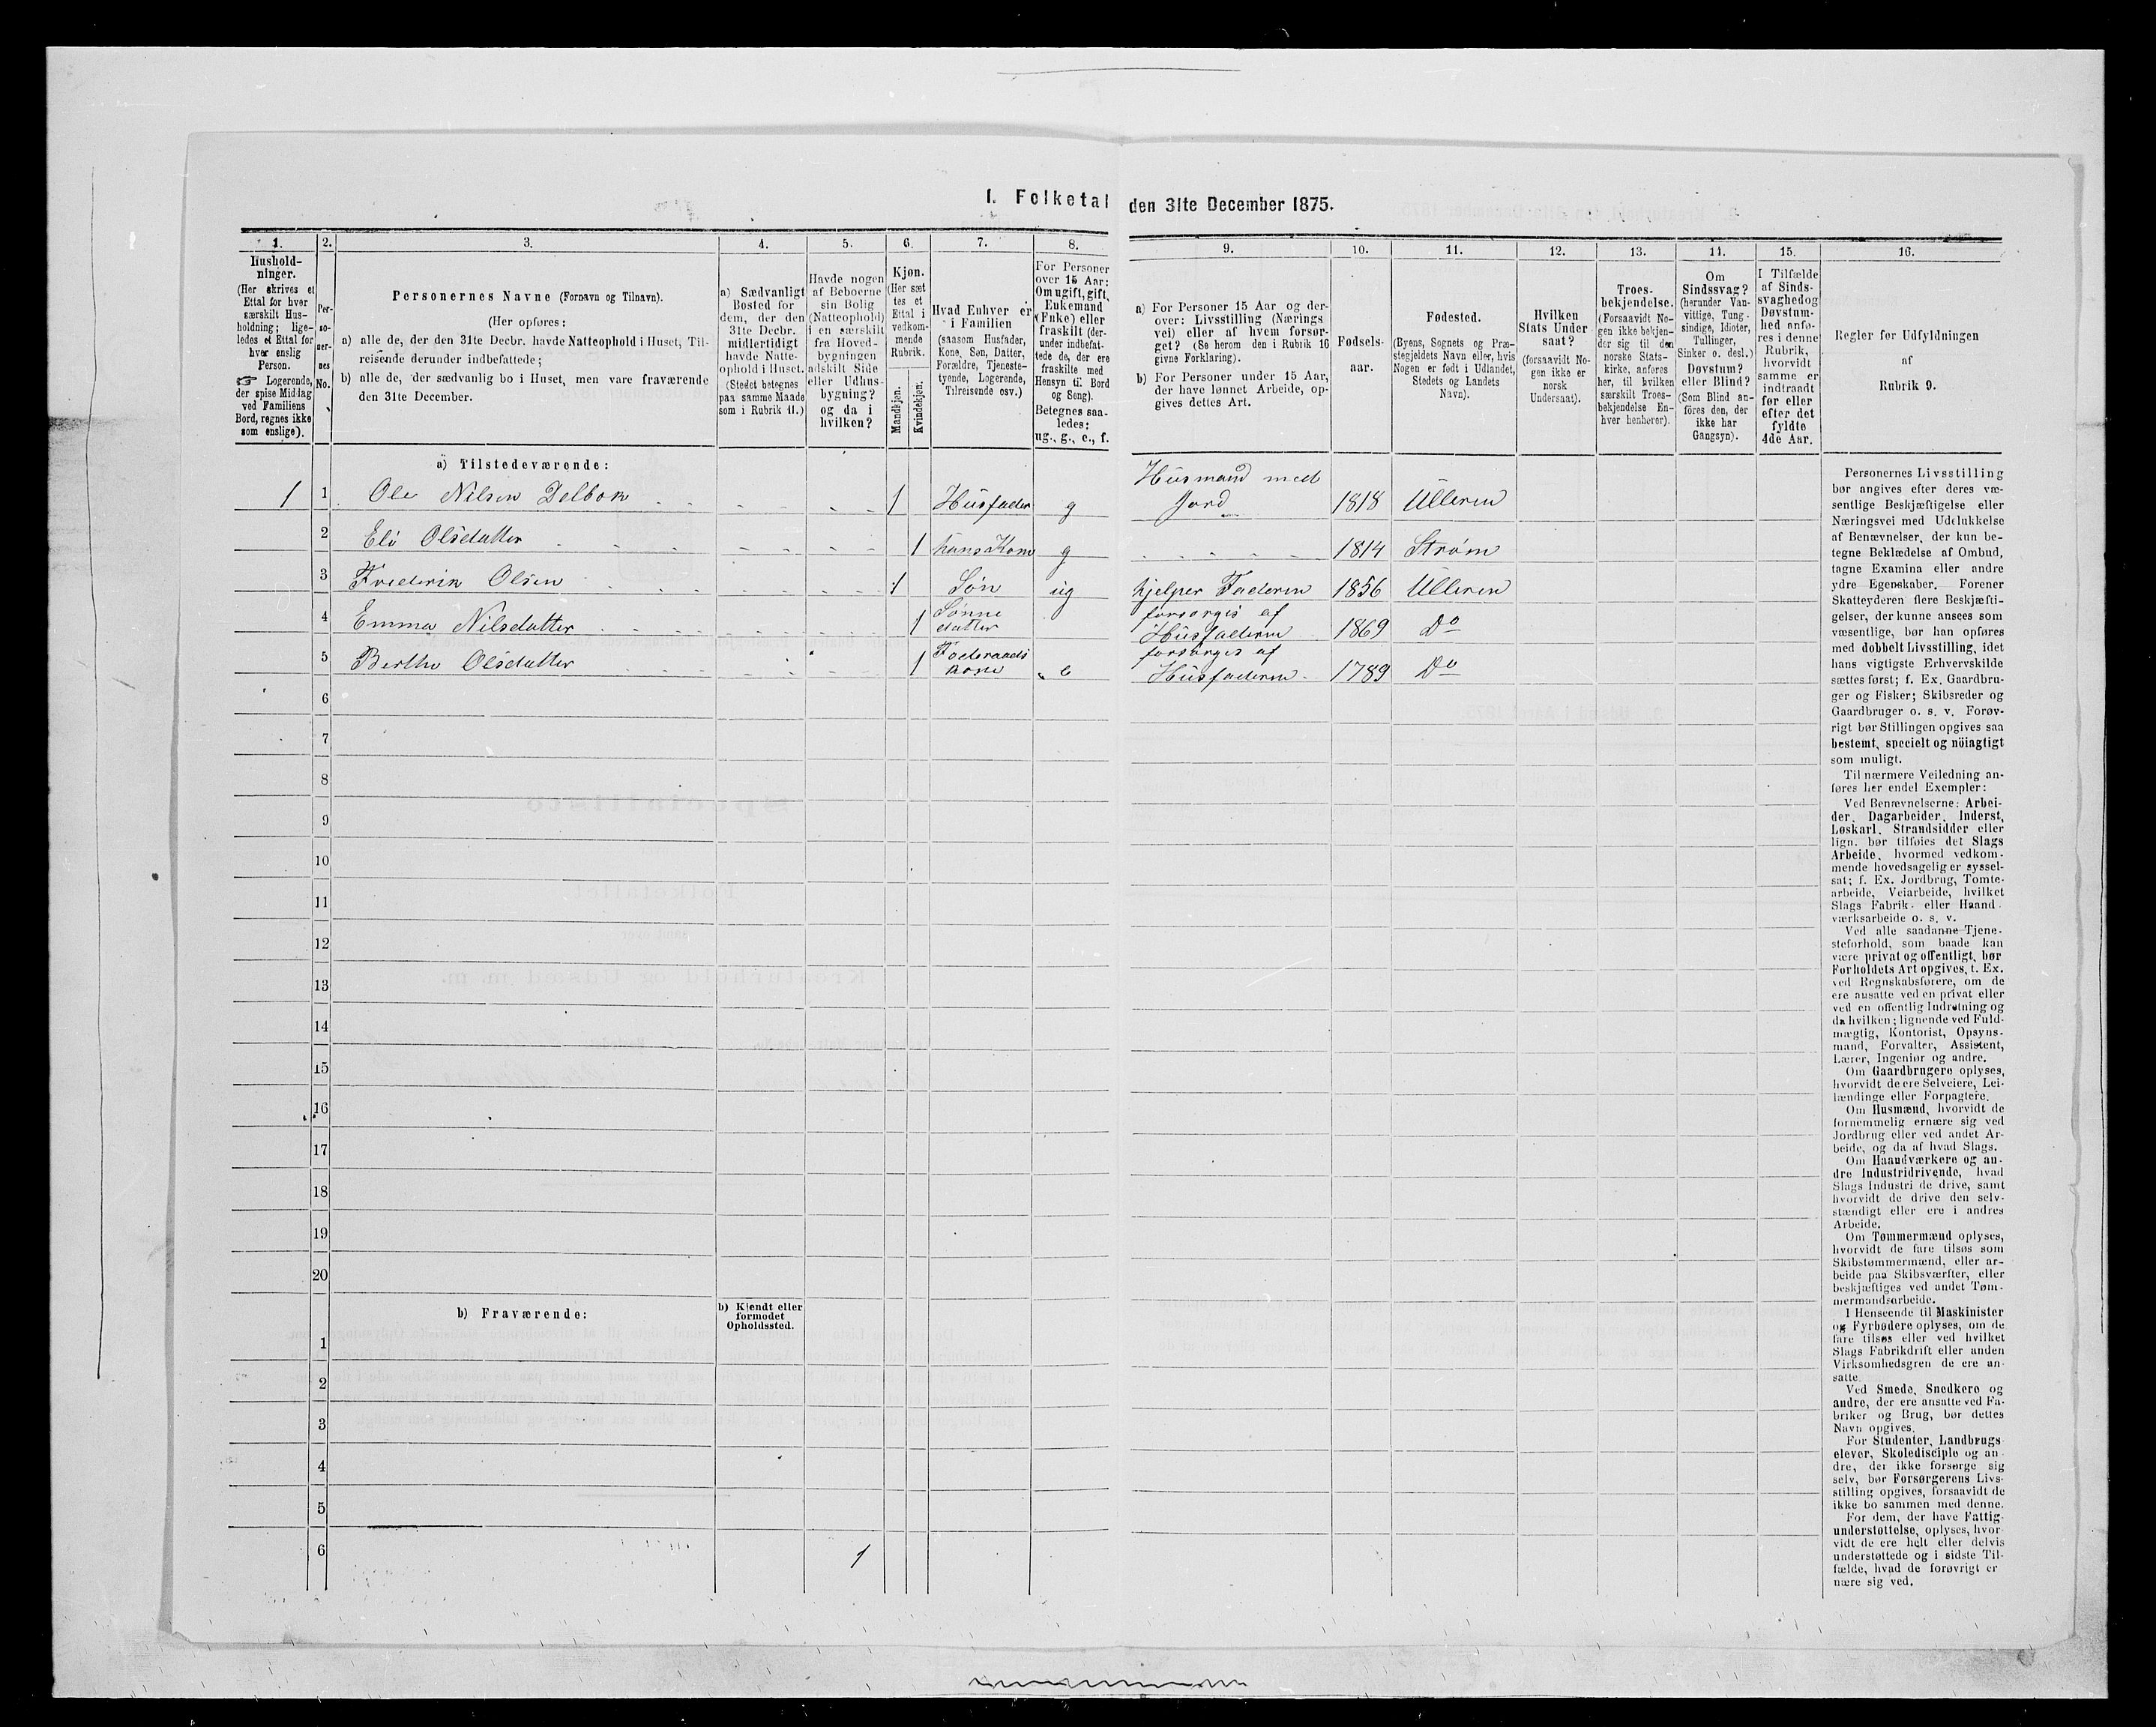 1. Folketal den 31te December 1875.
1.
2.
3.
4.
5.
6.
7.
8.
9.
10.
11.
12.
13.
14.
15.
16.
Hushold-
ninger.
(Her skrives et
Ettal for hver
særskilt Hus-
holdning; lige-
ledes et Ettal for
hver enslig
Person.
☞ Logerende,
der spise Middag
ved Familiens
Bord, regnes ikke
som enslige).
Per-
so-
ner-
nes
No.
Personernes Navne (Fornavn og Tilnavn).
(Her opføres:
a) alle de, der den 31te Decbr. havde Natteophold i Huset, Til-
reisende derunder indbefattede;
b) alle de, der sædvanlig bo i Huset, men vare fraværende
den 31te December.
a) Sædvanligt
Bosted for
dem, der den
31te Decbr.
midlertidigt
havde Natte-
ophold i Huset.
(Stedet betegnes
paa samme Maade
som i Rubrik 11.)
Havde nogen
af Beboerne
sin Bolig
(Natteophold)
i en særskilt
fra Hoved-
bygningen
adskilt Side
eller Udhus-
bygning?
og da i
hvilken?
Kjøn.
(Her sæt
tes et
Ettal i
vedkom-
mende
Rubrik.
Mandkjøn.
Kvindekjøn.
Hvad Enhver er
i Familien
(saasom Husfader,
Kone, Søn, Datter,
Forældre, Tjeneste-
tyende, Logerende,
Tilreisende osv.)
For Personer
over 15 Aar:
Om ugift, gift,
Enkemand
(Enke) eller
fraskilt (der-
under indbefat-
tede de, der ere
fraskilte med
Hensyn til Bord
og Seng).
Betegnes saa-
ledes:
ug., g., e., f.
a) For Personer 15 Aar og der-
over: Livsstilling (Nærings
vei) eller af hvem forsør-
get? (Se herom den i Rubrik 16
givne Forklaring).
b) For Personer under 15 Aar,
der have lønnet Arbeide, op-
gives dettes Art.
Fødsels-
aar.
Fødested.
(Byens, Sognets og Præ-
stegjeldets Navn eller, hvis
Nogen er født i Udlandet,
Stedets og Landets
Navn).
Hvilken
Stats Under
saat?
(forsaavidt No-
gen ikke er
norsk
Undersaat).
Troes-
bekjendelse.
(Forsaavidt No-
gen ikke bekjen-
der sig til den
norske Stats-
kirke, anføres
her, til hvilken
særskilt Troes-
bekjendelse En-
hver henhører).
Om
Sindssvag?
(herunder Van-
vittige, Tung-
sindige, Idioter,
Tullinger,
Sinker o. desl.)
Døvstum?
eller Blind?
(Som Blind an-
føres den, der
ikke har
Gangsyn).
I Tilfælde
af Sinds-
svaghed og
Døvstum-
hed anfø-
res i denne
Rubrik,
hvorvidt
samme er
indtraadt
før eller
efter det
fyldte
4de Aar.
Regler for Udfyldningen
af
Rubrik 9.
a) Tilstedeværende:
1 1 Ole Nilsen Delbok 1 Husfader g Husmand med
Jord 1818 Ulleren
2 Eli Olsdatter 1 hans Kone g 1814 Strøm
3 Frederik Olsen 1 Søn ug hjelper Faderen 1856 Ulleren
4 Emma Nilsdatter 1 Sønne
datter forsørges af
Husfaderen 1869 Do
5 Berthe Olsdatter 1 Foderaads
kone e forsørges af
Husfaderen 1789 Do
6
7
8
9
10
11
12
13
14
15
16
17
18
19
20
b) Fraværende:
b) Kjendt eller
formodet
Opholdssted.
1
2
3
4
5
6
1
Personernes Livsstilling
bør angives efter deres væ-
sentlige Beskjæftigelse eller
Næringsvei med Udelukkelse
af Benævnelser, der kun be-
tegne Beklædelse af Ombud,
tagne Examina eller andre
ydre Egenskaber. Forener
Skatteyderen flere Beskjæfti-
gelser, der kunne ansees som
væsentlige, bør han opføres
med dobbelt Livsstilling, idet
hans vigtigste Erhvervskilde
sættes først; f. Ex. Gaardbru-
ger og Fisker; Skibsreder og
Gaardbruger o. s. v. Forøv-
rigt bør Stillingen opgives saa
bestemt, specielt og nöiagtigt
som muligt.
Til nærmere Veiledning an-
føres her endel Exempler:
Ved Benævnelserne: Arbei-
der, Dagarbeider, Inderst,
Løskarl, Strandsidder eller
lign. bør tilføies det Slags
Arbeide, hvormed vedkom-
mende hovedsagelig er syssel-
sat; f. Ex. Jordbrug, Tomte-
arbeide, Veiarbeide, hvilket
Slags Fabrik- eller Haand-
værksarbeide o. s. v.
Ved alle saadanne Tjene-
steforhold, som baade kan
være privat og offentligt, bør
Forholdets Art opgives, t. Ex.
ved Regnskabsførere, om de
ere ansatte ved en privat eller
ved en offentlig Indretning og
da hvilken; lignende ved Fuld-
mægtig, Kontorist, Opsyns-
mand, Forvalter, Assistent,
Lærer, Ingeniør og andre.
Om Gaardbrugere oplyses,
hvorvidt de ere Selveiere, Lei-
lændinge eller Forpagtere.
Om Husmænd, hvorvidt de
fornemmelig ernære sig ved
Jordbrug eller ved andet Ar-
beide, og da af hvad Slags.
Om Haandværkere og an-
dre Industridrivende, hvad
Slags Industri de drive, samt
hvorvidt de drive den selv-
stændigt eller ere i andres
Arbeide.
Om Tømmermænd oplyses,
hvorvidt de fare tilsøs som
Skibstømmermænd, eller ar-
beide paa Skibsværfter, eller
beskjæftiges ved andet Tøm-
mermandsarbeide.
I Henseende til Maskinister
og Fyrbødere oplyses, om de
fare tilsøs eller ved hvilket
Slags Fabrikdrift eller anden
Virksomhedsgren de ere an-
satte.
Ved Smede, Snedkere og
andre, der ere ansatte ved Fa-
briker og Brug, bør dettes
Navn opgives.
For Studenter, Landbrugs
elever, Skoledisciple og an-
dre, der ikke forsørge sig
selv, bør Forsørgerens Livs-
stilling opgives, forsaavidt de
ikke bo sammen med denne.
For dem, der have Fattig-
understøttelse, oplyses, hvor-
vidt de ere helt eller delvis
understøttede og i sidste Til-
fælde, hvad de forøvrigt er
nære sig ved.